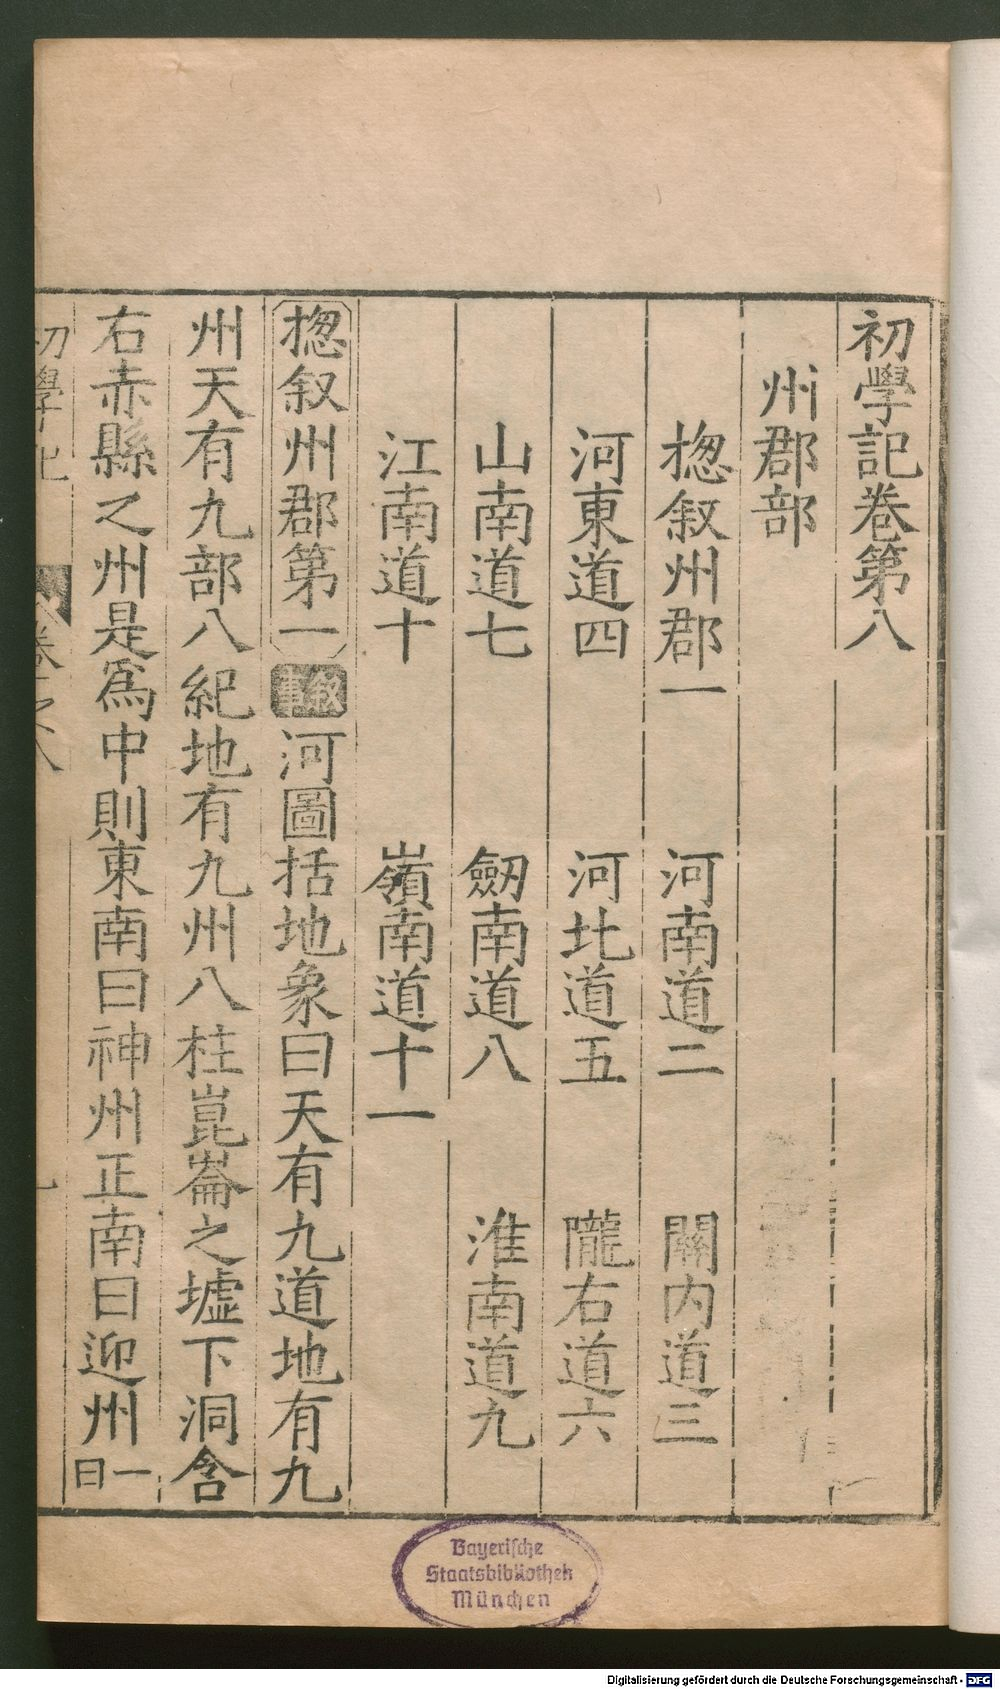 初學記卷第八
州郡部
揔叙州郡一 河南道二 關内道三
河東道四 河北道五 隴右道六
山南道七 劒南道八 淮南道九
江南道十 嶺南道十一
揔叙州郡第一 叙事 河圖括地象曰天有九道地有九
州天有九部八紀地有九州八柱崑崙之墟下洞含
右赤縣之州是爲中則東南曰神州正南曰迎州一曰
初學記 卷之八 一
Bayerische
Staatsbibliothek
München
Digitalisierung gefördert durch die Deutsche Forschungsgemeinschaft - DFG